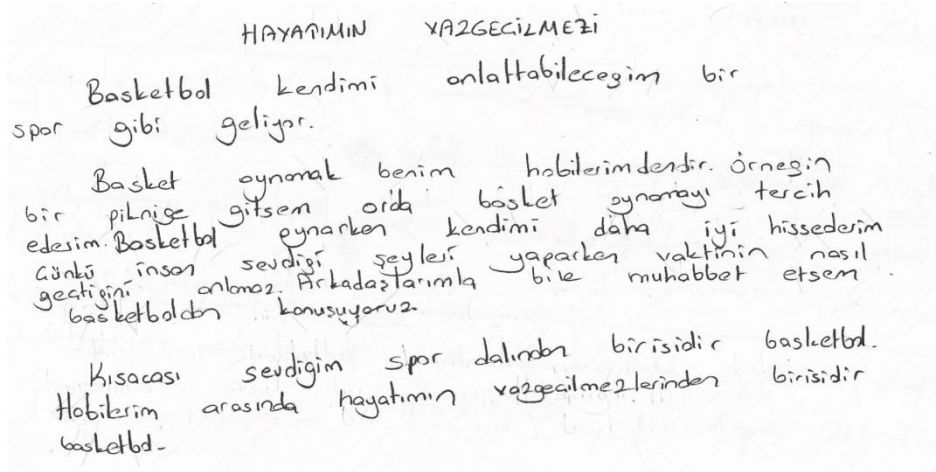 HAYATIMIN VAZGEÇİLMEZİ
Basketbol kendimi anlattabilecegim bir
spor gibi geliyor.
Basket oynamak benim hobilerimdendir. Örnegin
bir pikniğe gitsem orda basket oynamayı tercih
ederim. Basketbol oynarken kendimi daha iyi hissederim
Günkü insan sevdiği şeyleri yaparken vaktinin nasıl
geçtiğini anlamaz. Arkadaşlarımla bile muhabbet etsem
basketboldan konuşuyoruz.
Kısacası sevdiğim spor dalından birisidir basketbol.
Hobilerim arasında hayatımın vazgecilmezlerinden birisidir
basketbol.